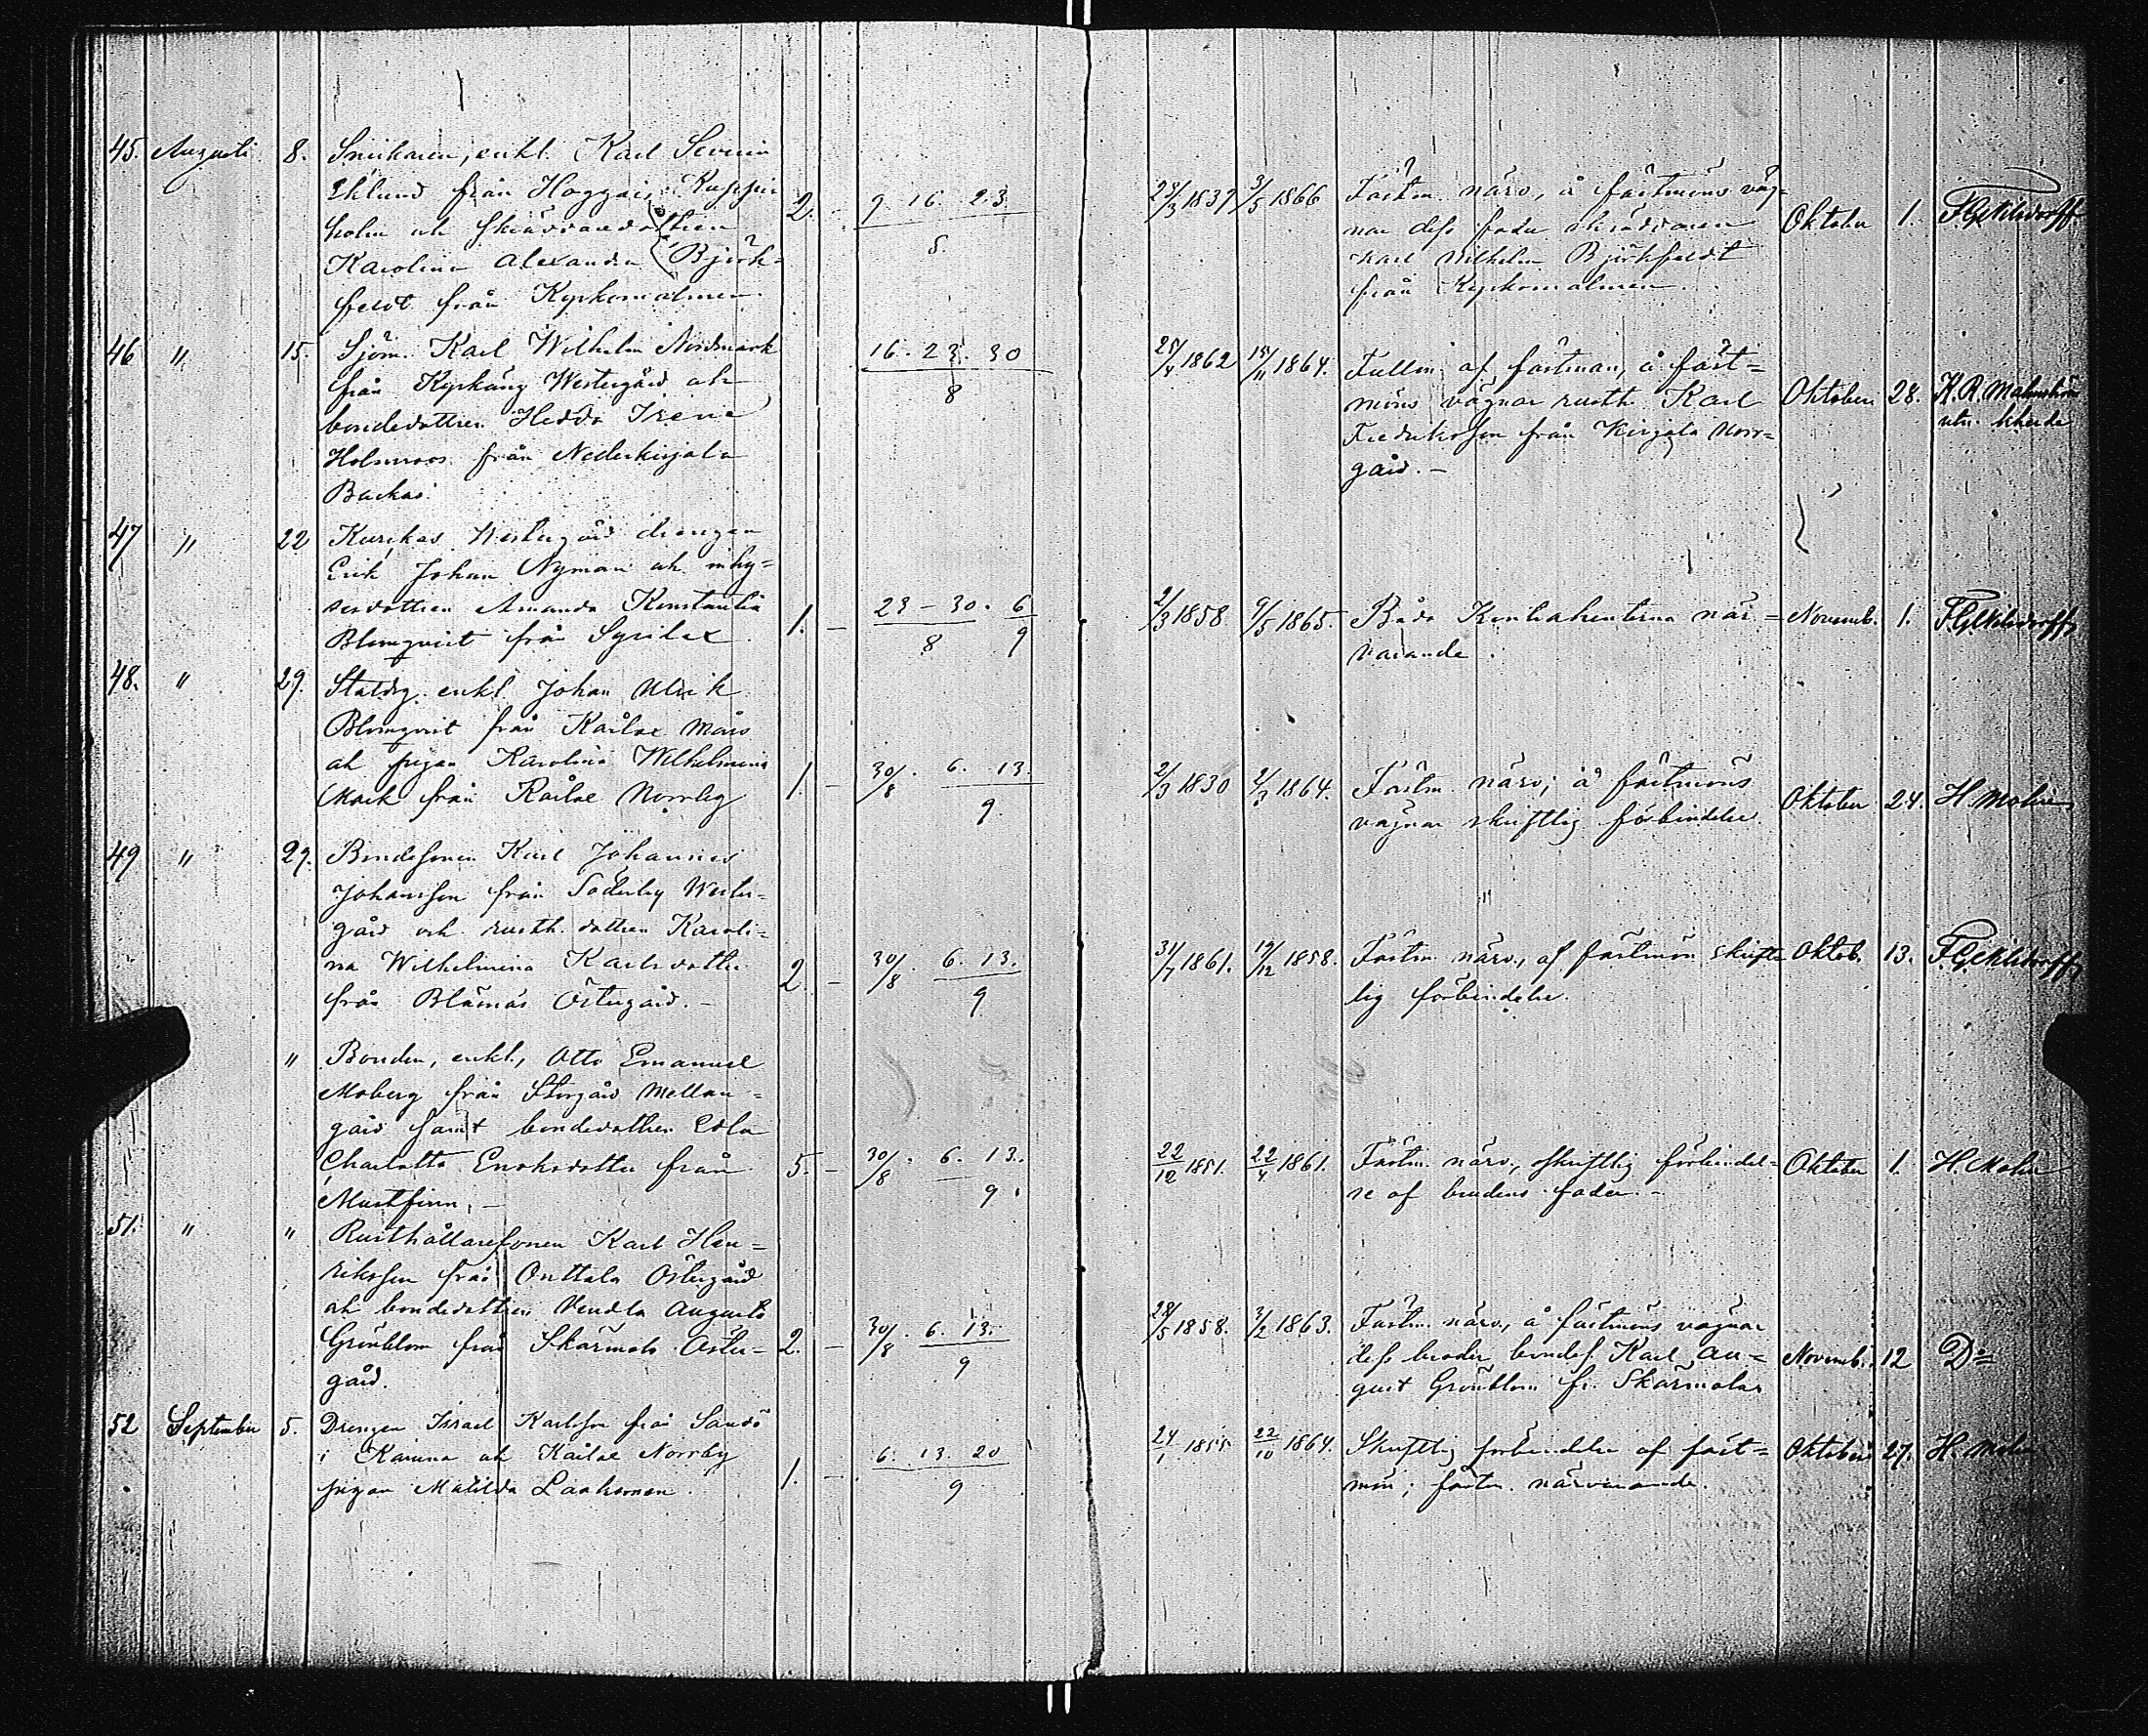 45. Augusti 8. Snickaren, enkl. Karl Severin
Eklund från Haggais Kuppis
holm och skräddaredottren
Karolina Alexandra Björk-
feldt från Kyrkomalmen.
2. 9. 16. 23.
8
23/3 1837 3/5 1866
Fästm. närv., å fästmöns väg-
nar dess fader skräddaren
Karl Wilhelm Björkfeldt
från Kyrkomalmen.
Oktober 1.
46 " 15. Sjöm. Karl Wilhelm Nordmark
från Kyrkäng Westergård och
bondedottren Hedda Irene
Holmroos från Nederkirjala
Backas.
16. 23. 30
8
25/4 1862 15/11 1864.
af fästman, å fäst=
möns vägnar rusth. Karl
Fredriksson från Kirjala Norr=
gård. –
Oktober 28. K. R. Malmström
47 " 22 Kurckas Westergård drengen
Erik Johan Nyman och inhy=
sesdottren Amanda Konstantia
Blomqvist från Syrilax.
1. – 23 – 30. 6
8 9
2/3 1858 9/5 1865.
Båda Kontrahenterna när=
varande.
Novemb. 1.
48. " 29. Staldrg. enkl. Johan Ulrik
Blomqvist från Kårlax Mårs
och pigan Karolina Wilhelmina
Mark från Kårlax Norrby
1. – 30/8. 6. 13.
9.
2/3 1830 2/3 1864.
Fästm. närv; å fästmöns
vägnar skriftlig förbindelse.
Oktober 24. H. Molin
49 " 29. Bondesonen Karl Johannes
Johansson från Söderby Wester-
gård och rusth. dottren Karoli-
na Wilhelmina Karlsdotter
från Bläsnäs Östergård. –
2. – 30/8. 6. 13.
9
31/7 1861. 19/12 1858.
Fästm. närv., af fästmön skrift-
lig förbindelse.
Oktob. 13.
" Bonden, enkl., Otto Emanuel
Moberg från Storgård Mellan-
gård samt bondedottren Edla
Charlotta Enoksdotter från
Mustfinn. –
5. – 30/8. 6. 13.
9.
22/12 1851. 22/4 1861.
Fästm. närv., skriftlig förbindel-
se af brudens fader. –
Oktober 1. H. Molin
51. " " Rusthållaresonen Karl Hen=
riksson från Onttala Östergård
och bondedottren Vendla Augusta
Grönblom från Skärmola Öster-
gård.
2. – 30/8. 6. 13.
9
28/5 1858. 3/2 1863.
Fästm. närv., å fästmöns vägnar
dess broder bondes. Karl Au=
gust Grönblom fr. Skärmola
Novemb. 12 D:o
52 September 5. Drengen Israel Karlsson från Sandö
i Karuna och Kårlax Norrby
pigan Matilda Laakonen.
1. – 6. 13. 20
9
24/1 1855 22/10 1864.
Skriftlig förbindelse af fäst=
mön; fästm. närvarande.
Oktober 27. H. Molin